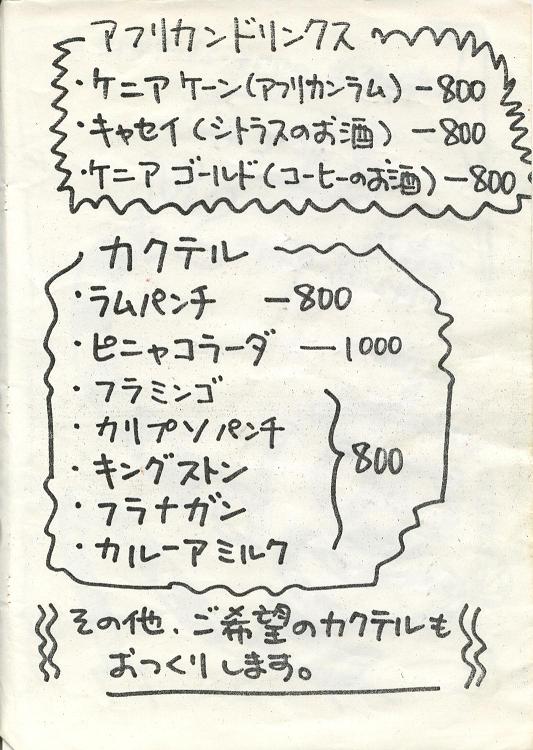 アフリカンドリンクス
・ケニアケーン(アフリカンラム) ー800
・キャセイ(シトラスのお酒) ー800
・ケニアゴールド(コーヒーのお酒) ー800
カクテル
・ラムパンチ ー800
・ピニャコラーダ ー1000
・フラミンゴ
・カリプソパンチ
・キングストン
・フラナガン
・カルーアミルク
800
その他、ご希望のカクテルも
おつくりします。